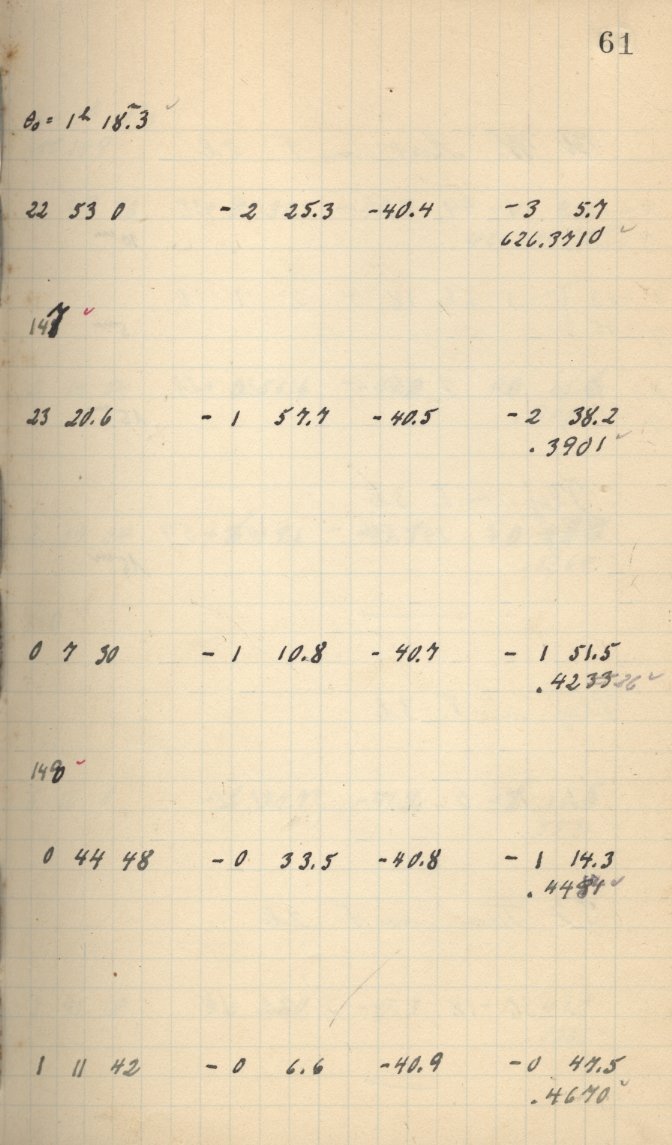 61
θ₀ = 1ʰ 18ᵐ.3
22 53 0 - 2 25.3 -40.4 - 3 5.7
626.3710
147
23 20.6 - 1 57.7 -40.5 - 2 38.2
.3901
0 7 30 - 1 10.8 - 40.7 - 1 51.5
.4233
148
0 44 48 - 0 33.5 -40.8 - 1 14.3
1 11 42 - 0 6.6 -40.9 -0 47.5
.4670